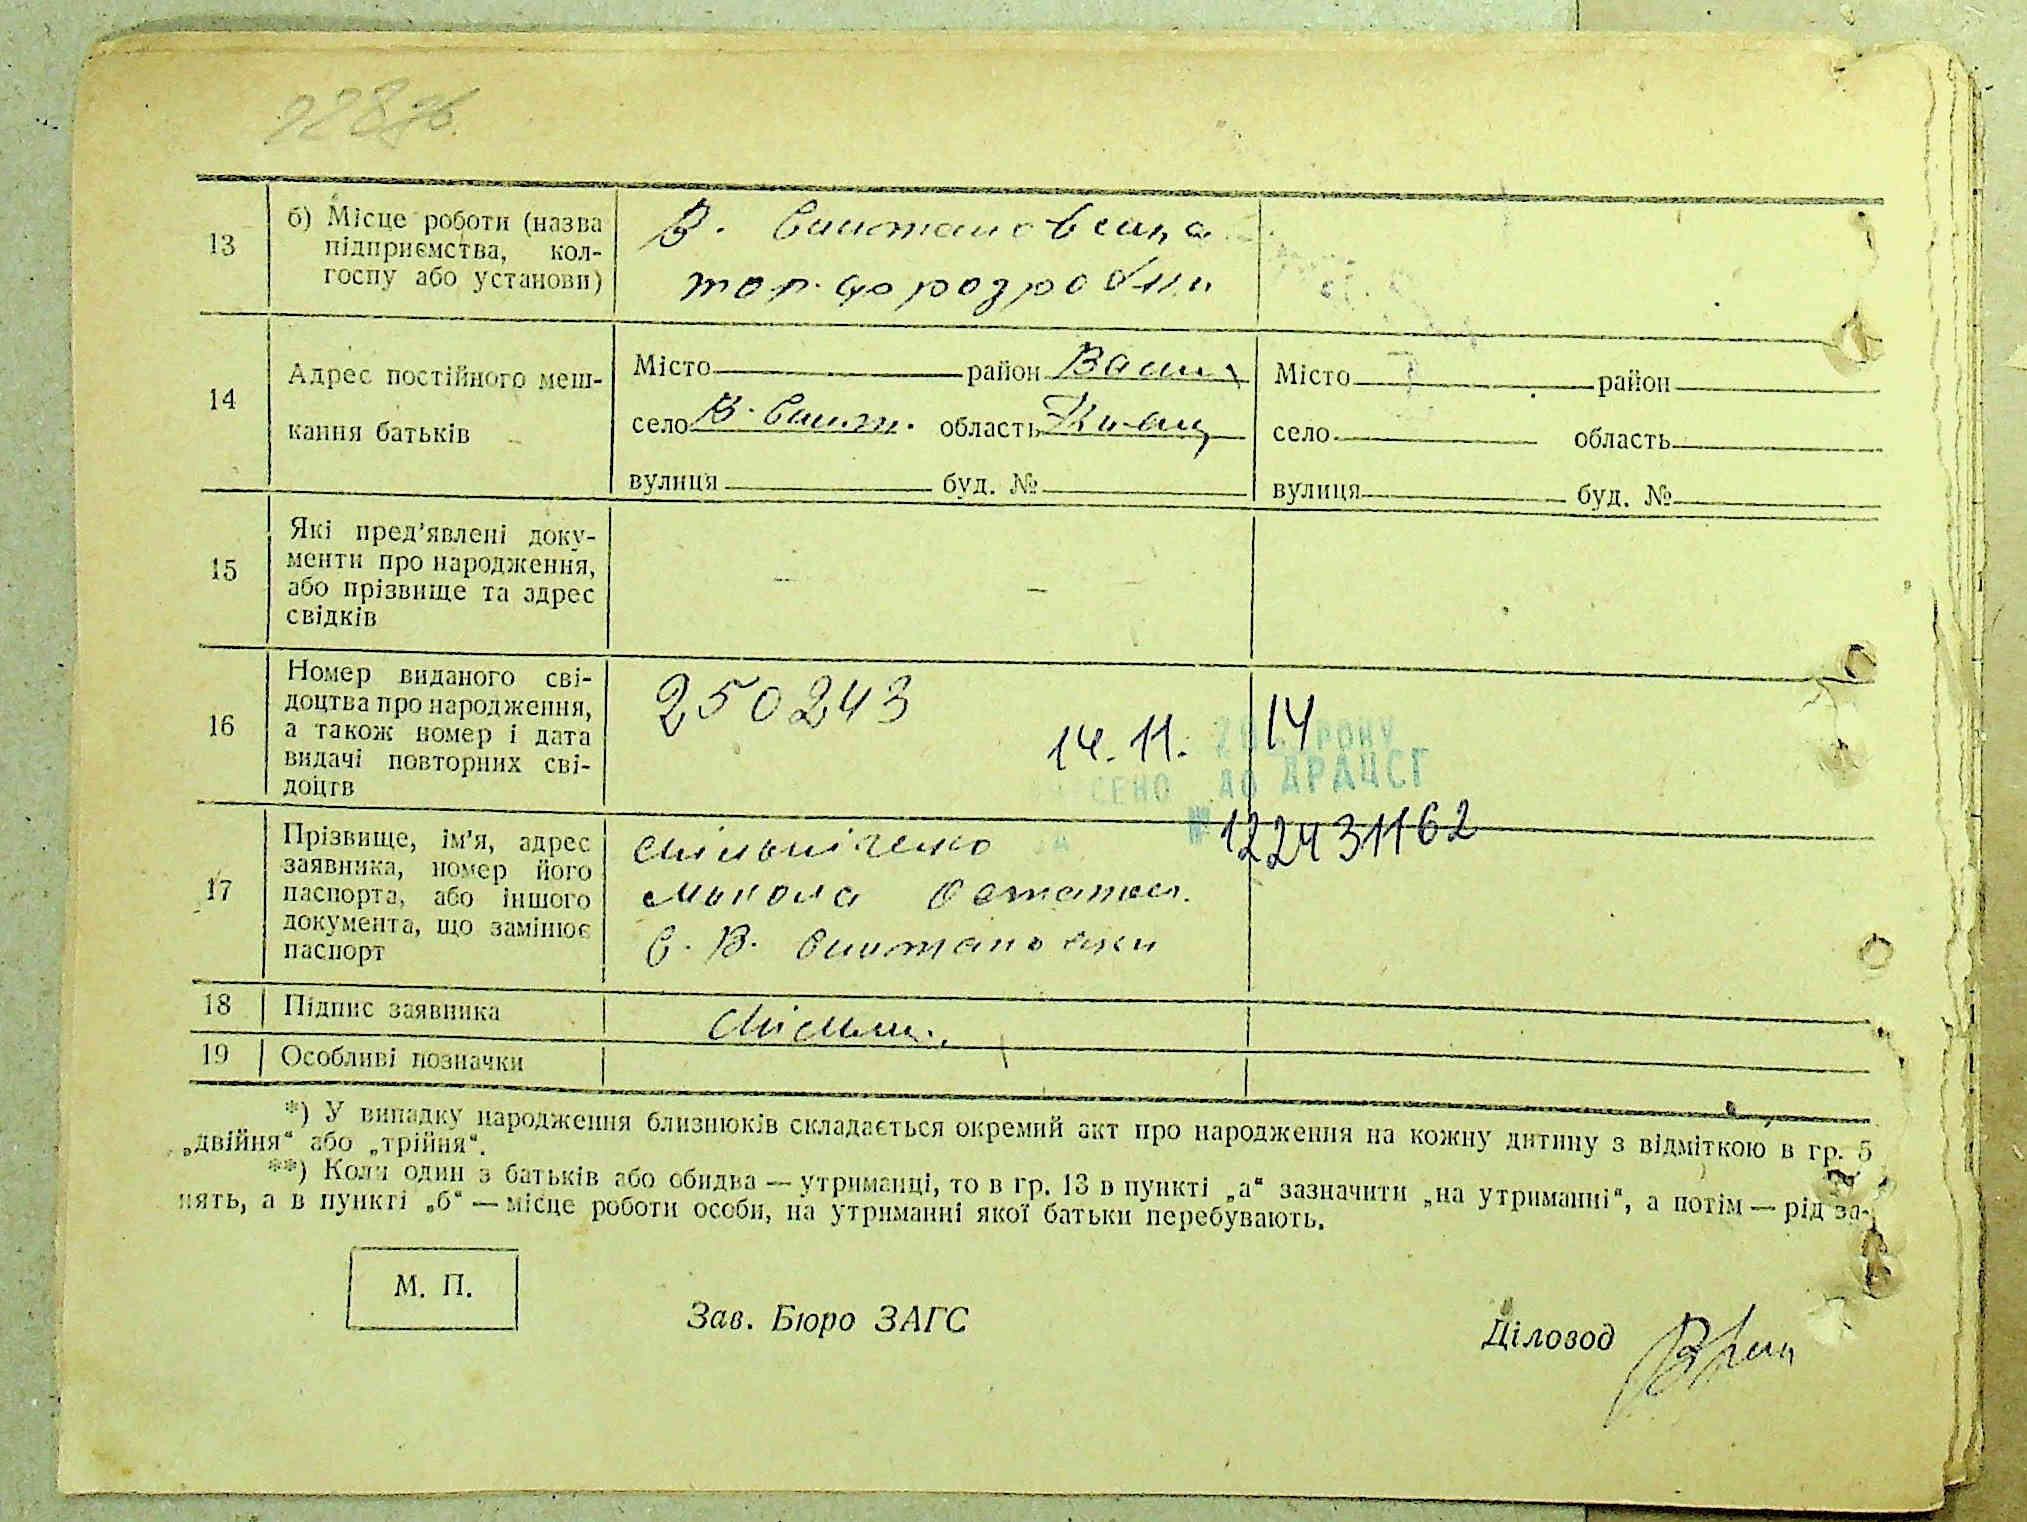 228зв.
13
б) Місце роботи (назва
підприємства, кол-
госпу або установи)
В. Снитановська
торфорозробки
14
Адрес постійного меш-
кання батьків
Місто район Васил
село В. Снит. область Київ
вулиця буд. №
Місто район
село область
вулиця буд. №
15
Які пред’явлені доку-
менти про народження,
або прізвище та адрес
свідків
16
Номер виданого сві-
доцтва про народження,
а також номер і дата
видачі повторних сві-
доцтв
250243
14. 11. 20 14 РОКУ
СЕНО ДО ДРАЦСГ
№ 122431162
17
Прізвище, ім’я, адрес
заявника, номер його
паспорта, або іншого
документа, що замінює
паспорт
Микола Остапов.
С. В. Снитановки
18 Підпис заявника
19 Особливі позначки
*) У випадку народження близнюків складається окремий акт про народження на кожну дитину з відміткою в гр. 5
„двійня“ або „трійня“.
**) Коли один з батьків або обидва — утриманці, то в гр. 13 в пункті „а“ зазначити „на утриманні“, а потім — рід за-
нять, а в пункті „б“ — місце роботи особи, на утриманні якої батьки перебувають.
М. П.
Зав. Бюро ЗАГС
Діловод